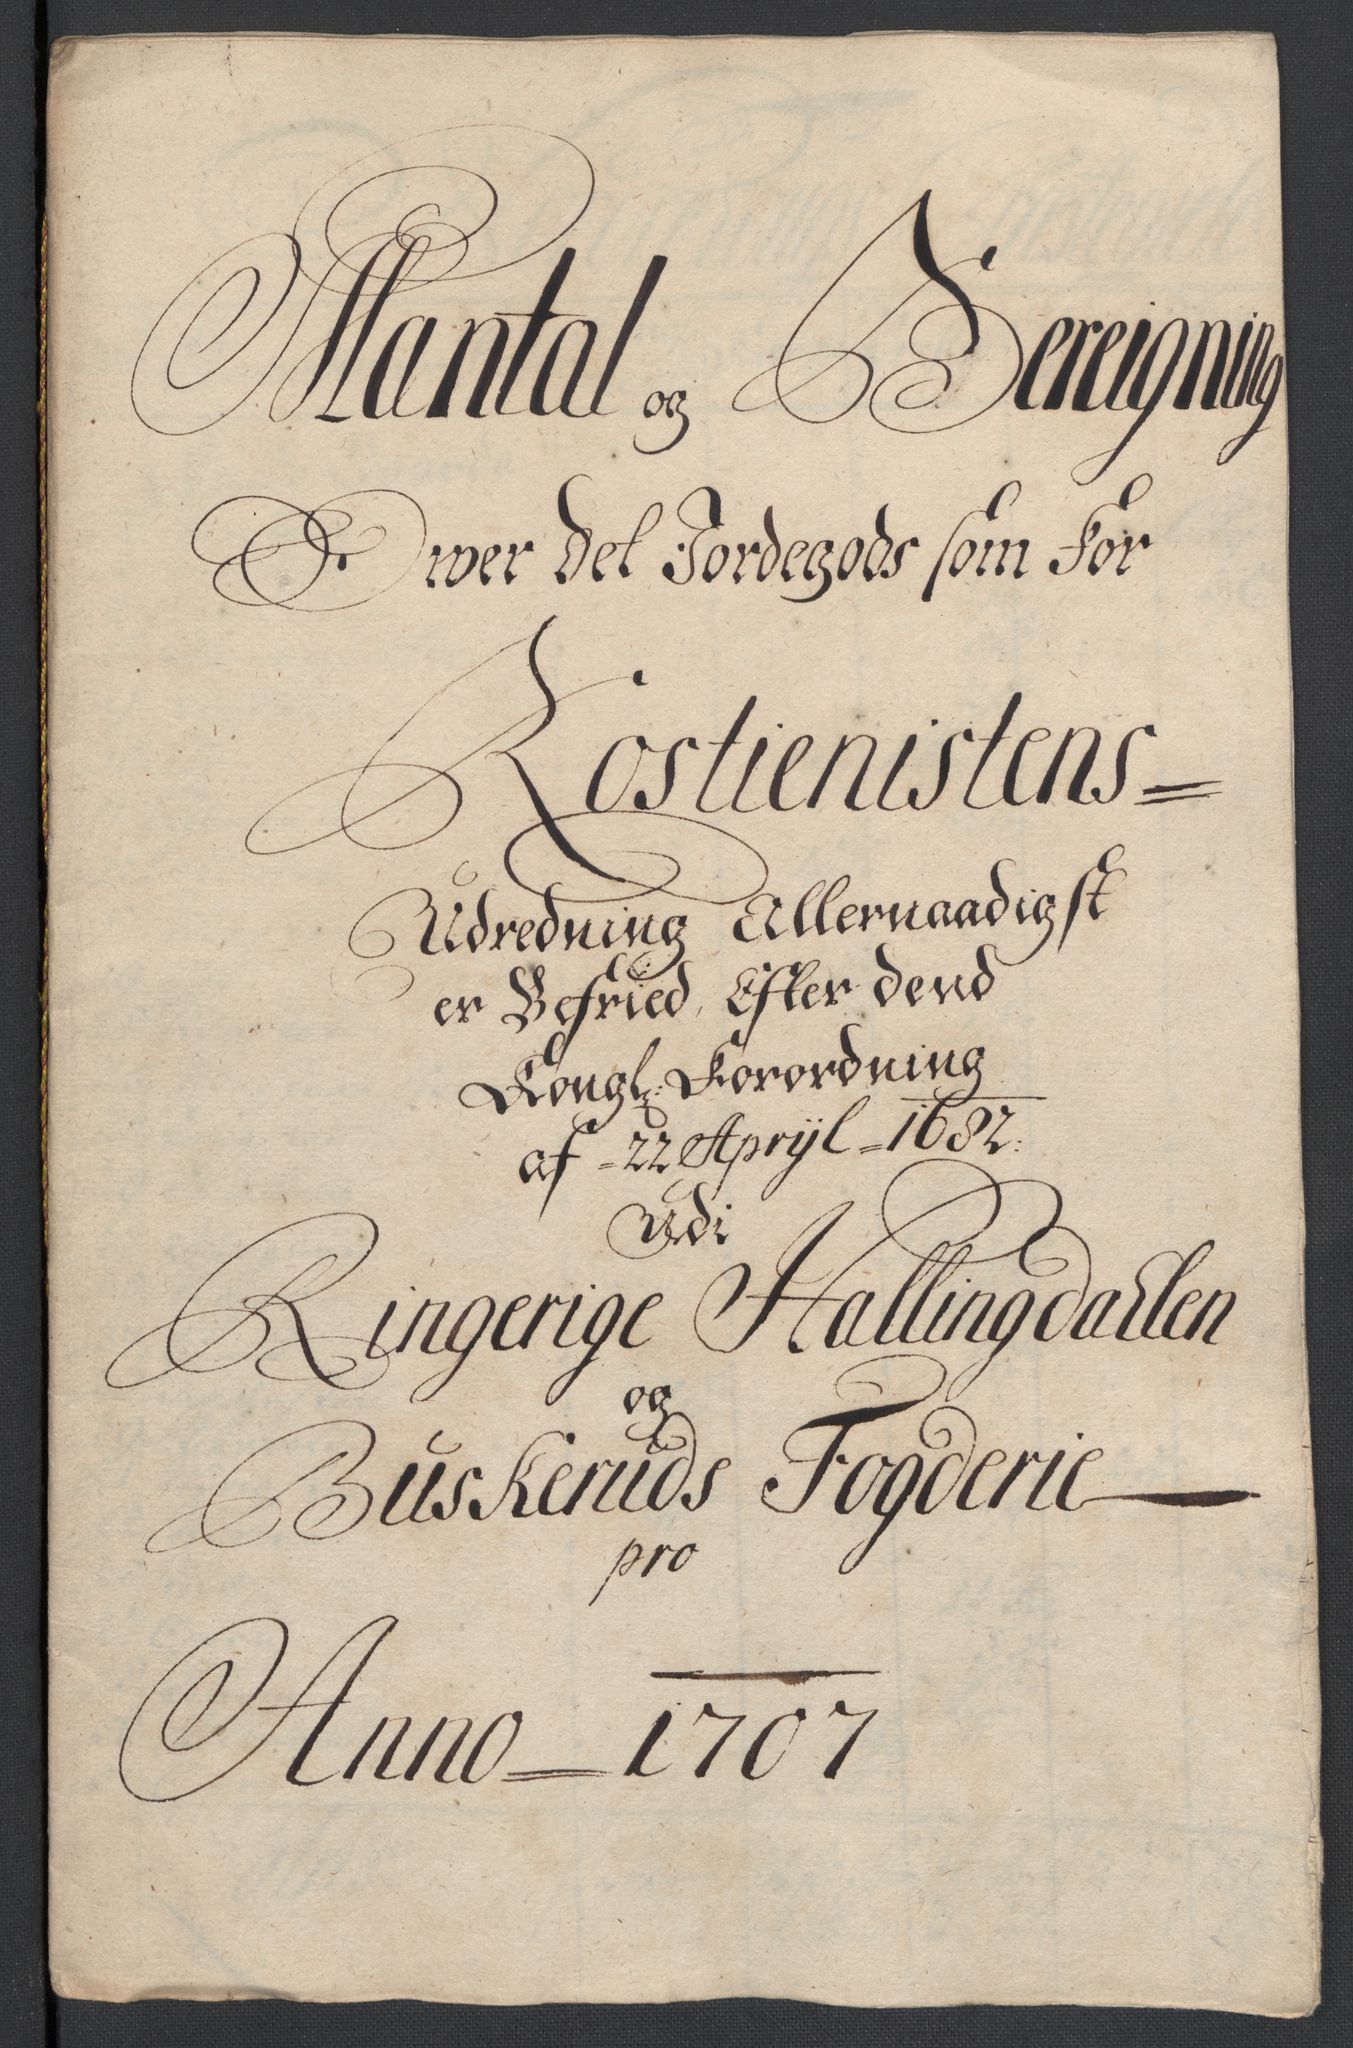 Mantal og Bereigning
Ower det Jordegods som for
Rostienistens=
Udredning Allernaadigst
er Befried, Efter dend
Kongl: Forordning
af =22 Aprjl=1682:
Udi
Ringerige Hallingdahlen
og
Buskeruds Fogderie
pro
Anno=1707